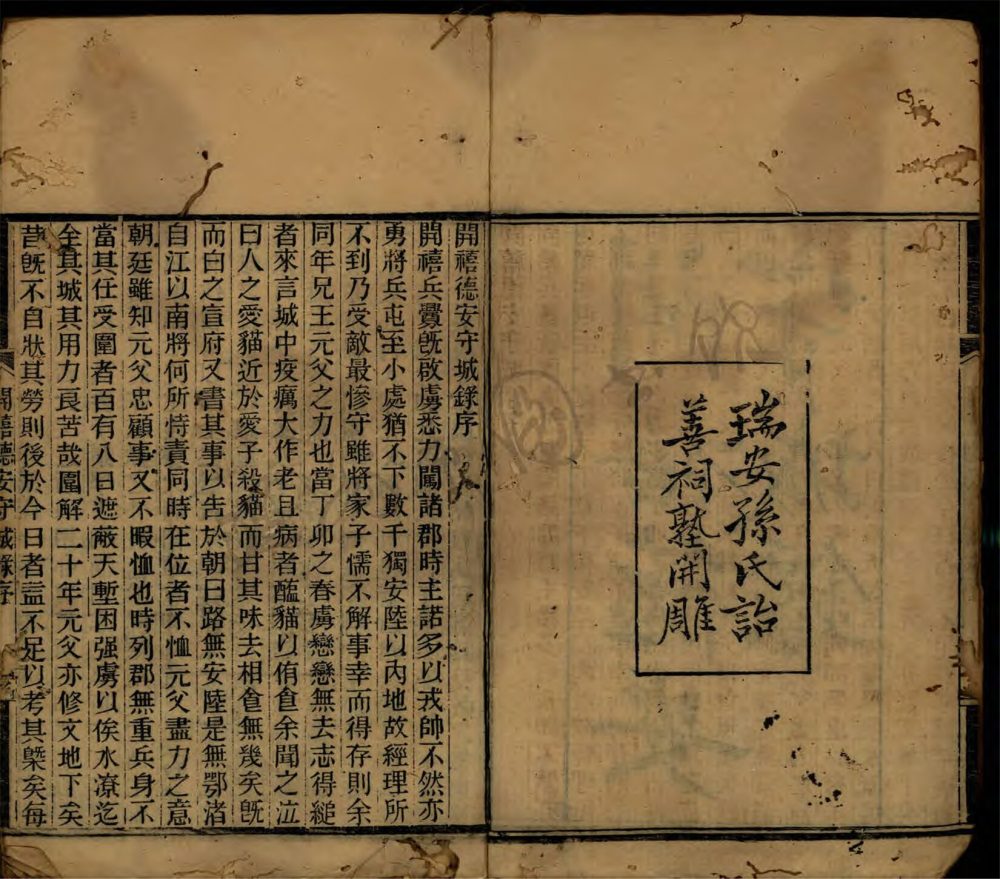 瑞安孫氏詒
善祠塾開雕
開禧德安守城錄序
開禧兵釁旣啟虜悉力闖諸郡時主諾多以戎帥不然亦
勇將兵屯至小處猶不下數千獨安陸以內地故經理所
不到乃受敵最慘守雖將家子懦不解事幸而得存則余
同年兄王元父之力也當丁卯之春虜戀戀無去志得縋
者來言城中疫癘大作老且病者醢貓以侑食余聞之泣
曰人之愛貓近於愛子殺貓而甘其味去相食無幾矣旣
而白之宣府又書其事以告於朝曰路無安陸是無鄂渚
自江以南將何所恃責同時在位者不恤元父盡力之意
朝廷雖知元父忠顧事又不暇恤也時列郡無重兵身不
當其任受圍者百有八日遮蔽天塹困强虜以俟水潦迄
全其城其用力良苦哉圍解二十年元父亦修文地下矣
昔旣不自狀其勞則後於今日者盖不足以考其槩矣每
開禧德安守城錄序